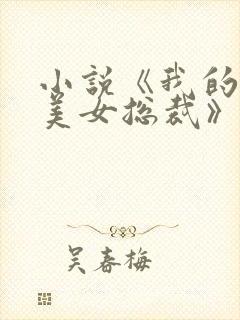 小説《我的
美女总裁》
吴春梅